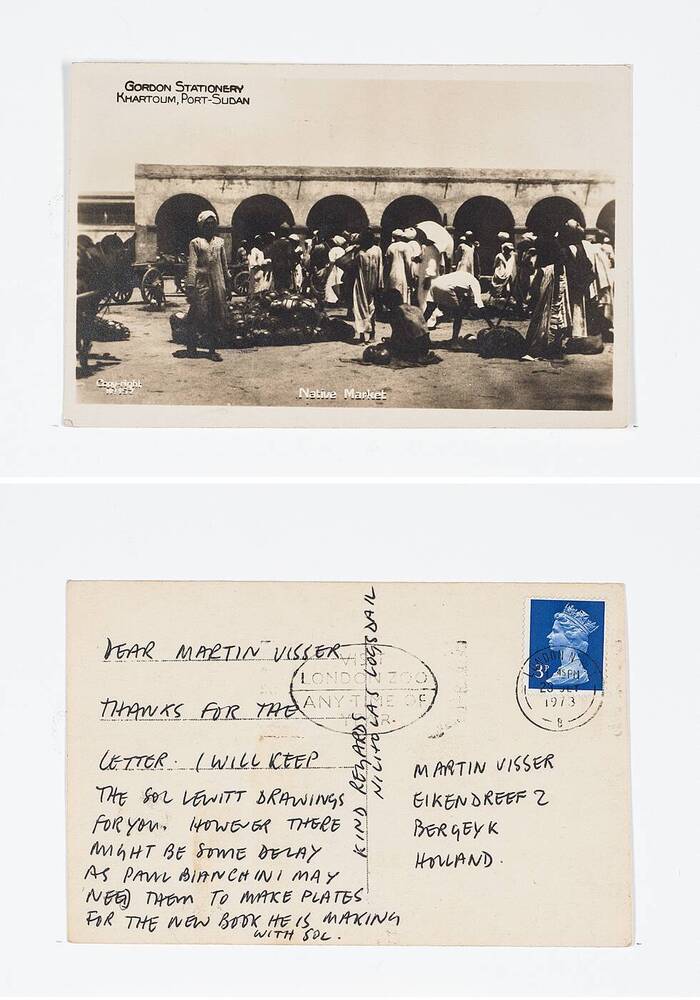 GORDON STATIONERY
KHARTOUM, PORT-SUDAN
Copy-right
Native Market
DEAR MARTIN VISSER
THANKS FOR THE
LETTER. I WILL KEEP
THE SOL LEWITT DRAWINGS
FOR YOU. HOWEVER THERE
MIGHT BE SOME DELAY
AS PAUL BIANCHINI MAY
NEED THEM TO MAKE PLATES
FOR THE NEW BOOK HE IS MAKING
WITH SOL.
KIND REGARDS
NICHOLAS LOGSDAIL
VISIT
LONDON ZOO
ANY TIME OF
YEAR
3P
LONDON
1973
MARTIN VISSER
EIKENDREEF 2
BERGEYK
HOLLAND.